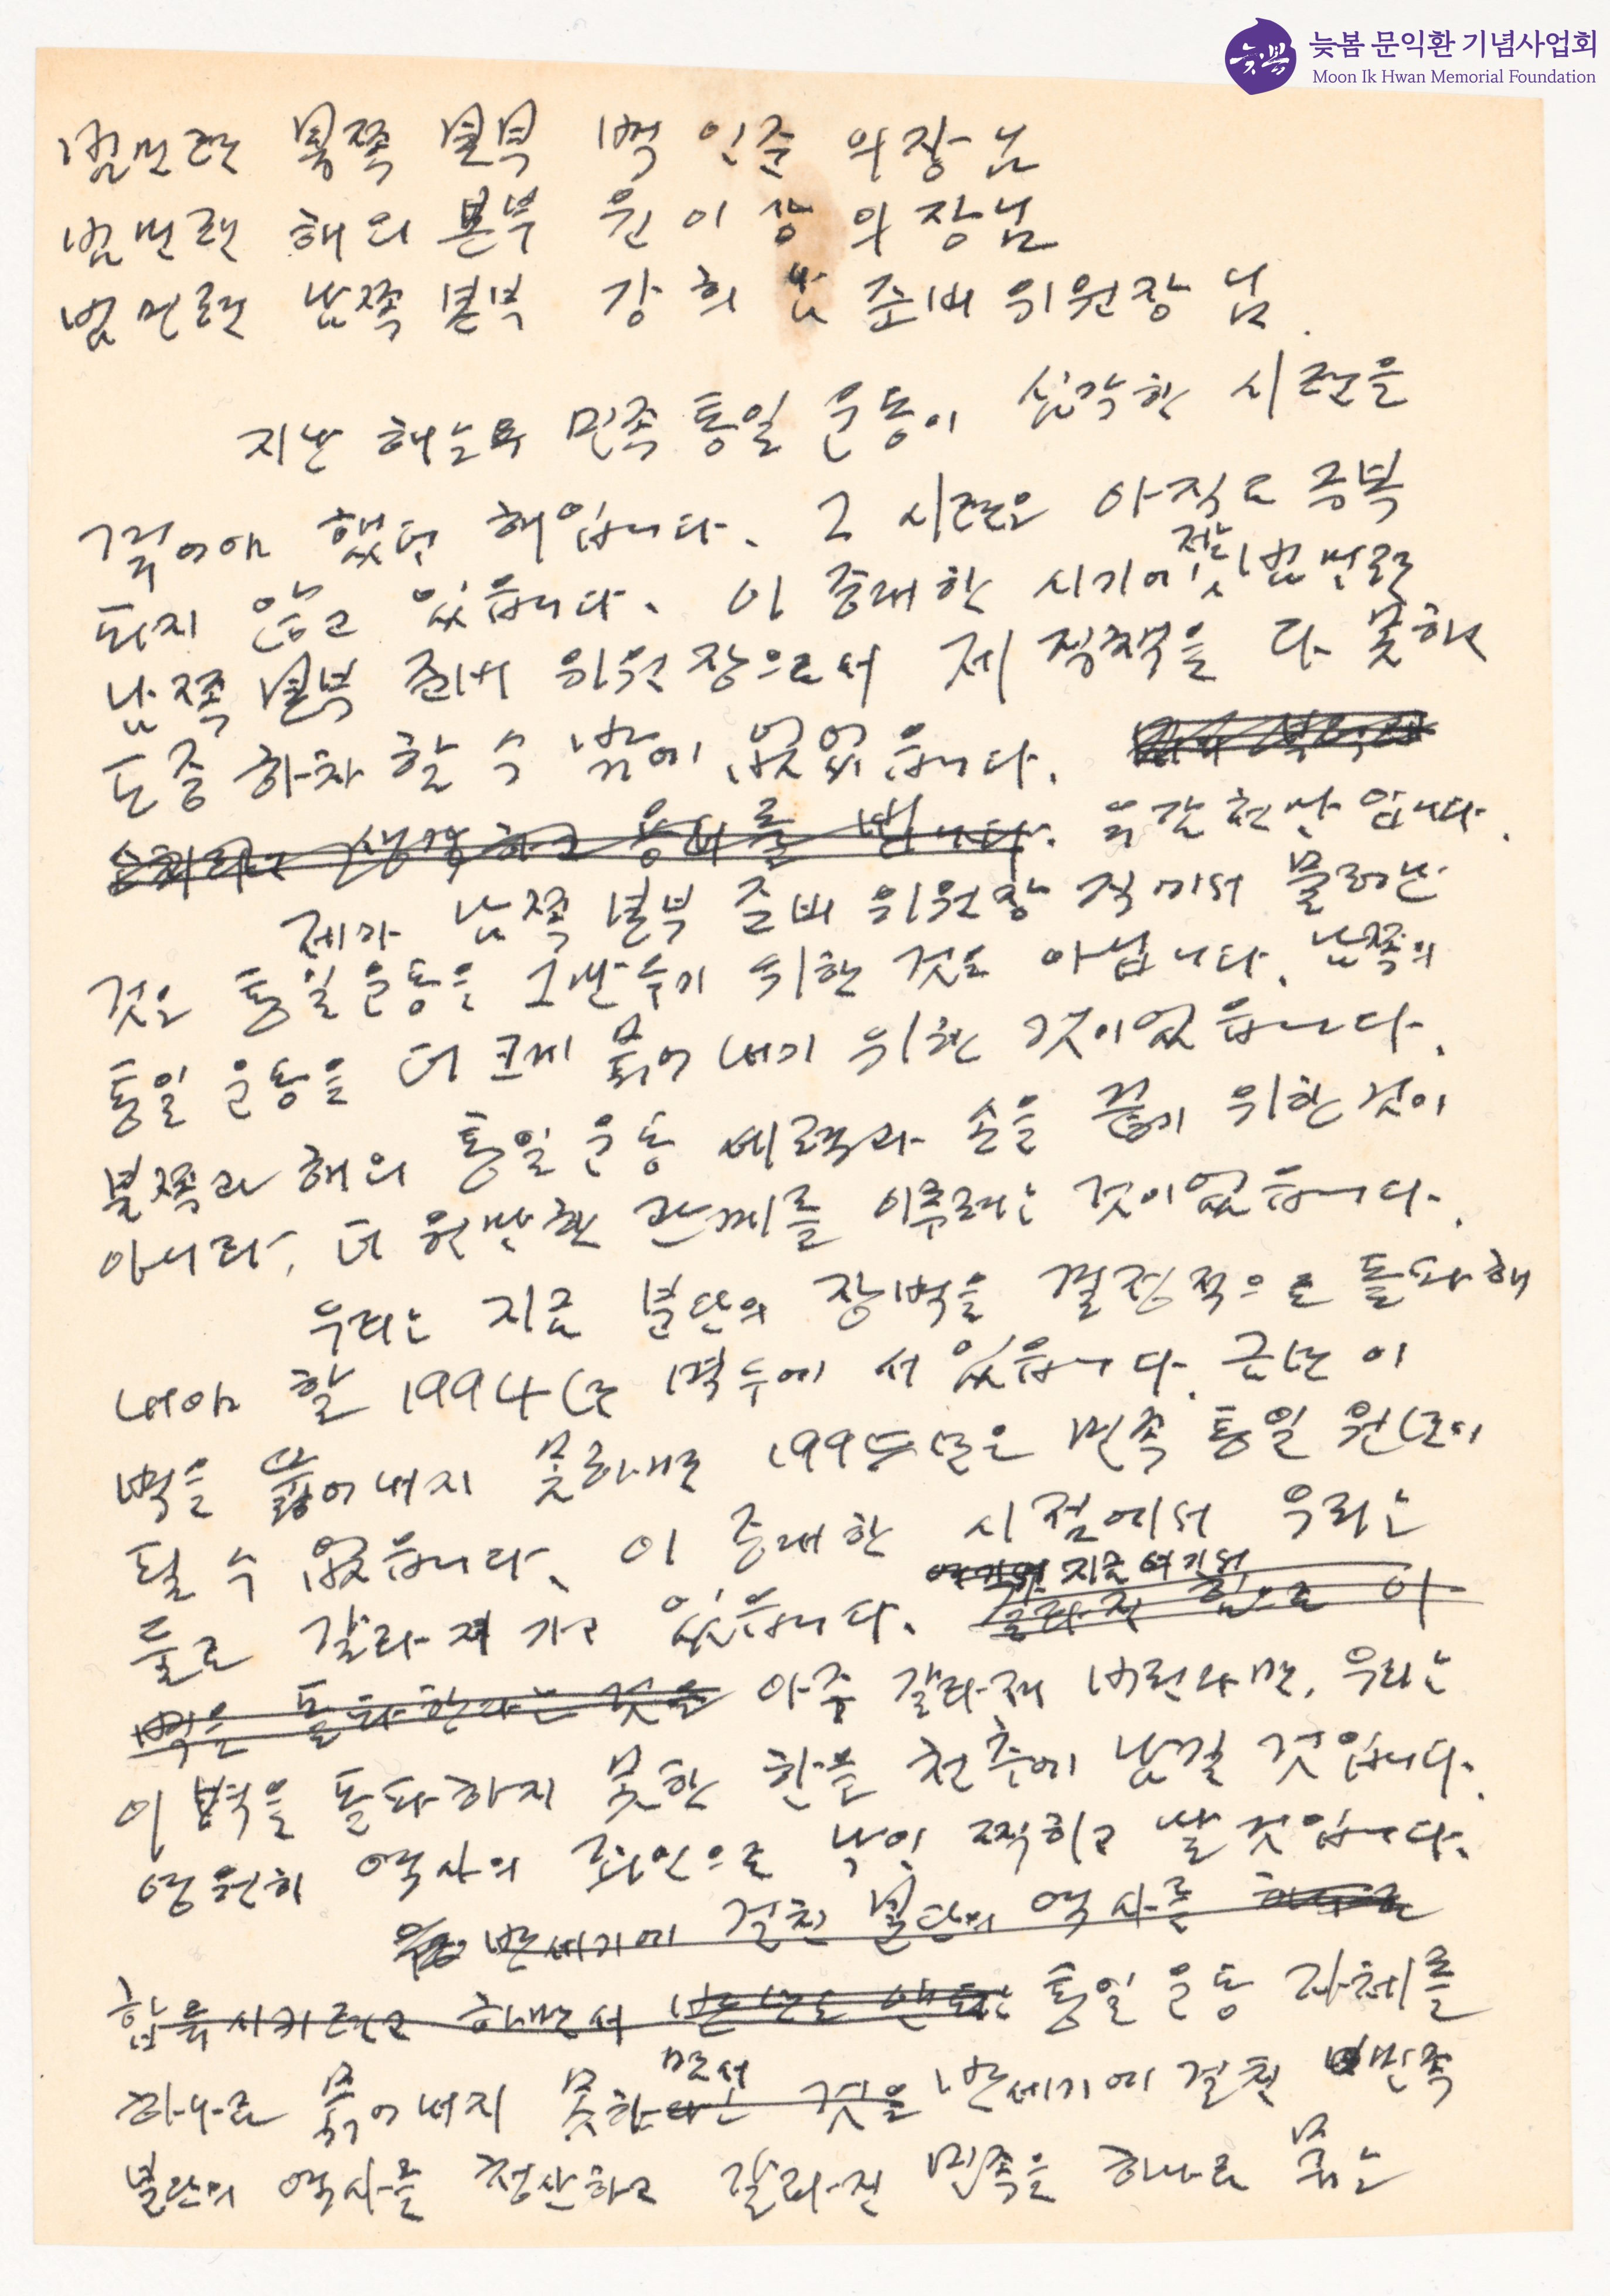 늦봄 문익환 기념사업회
Moon Ik Hwan Memorial Foundation
범민련 북쪽 본부 백 인준 의장님
범민련 해외 본부 윤 이 상 의장님
범민련 남쪽 본부 강 희 남 준비 위원장 님.
지난 해는 민족 통일 운동이 심각한 시련을
겪어야 했던 해입니다. 그 시련은 아직도 극복
되지 않고 있습니다. 이 중대한 시기에 범민련
남쪽 본부 준비 위원장으로서 제 직책을 다 못하고
도중 하차 할 수 밖에 없었습니다.
생각하고 용서를 빕니다. 유감천만입니다.
제가 남쪽 본부 준비 위원장 직에서 물러난
것은 통일 운동을 그만두기 위한 것은 아닙니다. 남쪽의
통일 운동을 더 크게 묶어 내기 위한 것이었습니다.
북쪽과 해외 통일 운동 세력과 손을 끊기 위한 것이
아니라, 더 원만한 관계를 이루려는 것이었습니다.
우리는 지금 분단의 장벽을 결정적으로 돌파해
내야 할 1994년 벽두에 서 있습니다. 금년 이
벽을 뚫어 내지 못하면 1995년은 민족 통일 원년이
될 수 없습니다. 이 중대한 시점에서 우리는
지금 여기서
둘로 갈라져 가고 있습니다. 갈라진 힘으로 이
벽을 돌파한다는 것을 아주 갈라져 버린다면, 우리는
이 벽을 돌파하지 못한 한을 천추에 남길 것입니다.
영원히 역사의 죄인으로 낙인 찍히고 말 것입니다.
반세기에 걸친 분단의 역사를 하나로
합류시키려고 하면서 통일 운동 자체를
면서
하나로 묶어 내지 못한다는 것을 반세기에 걸친 민족
분단의 역사를 청산하고 갈라진 민족을 하나로 묶는